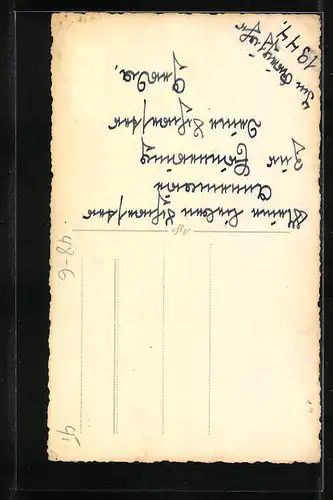 Agfa
Meiner lieben Schwester
Annemarie
Zur Erinnerung
Deine Schwester
Gerda.
1944.
48-6